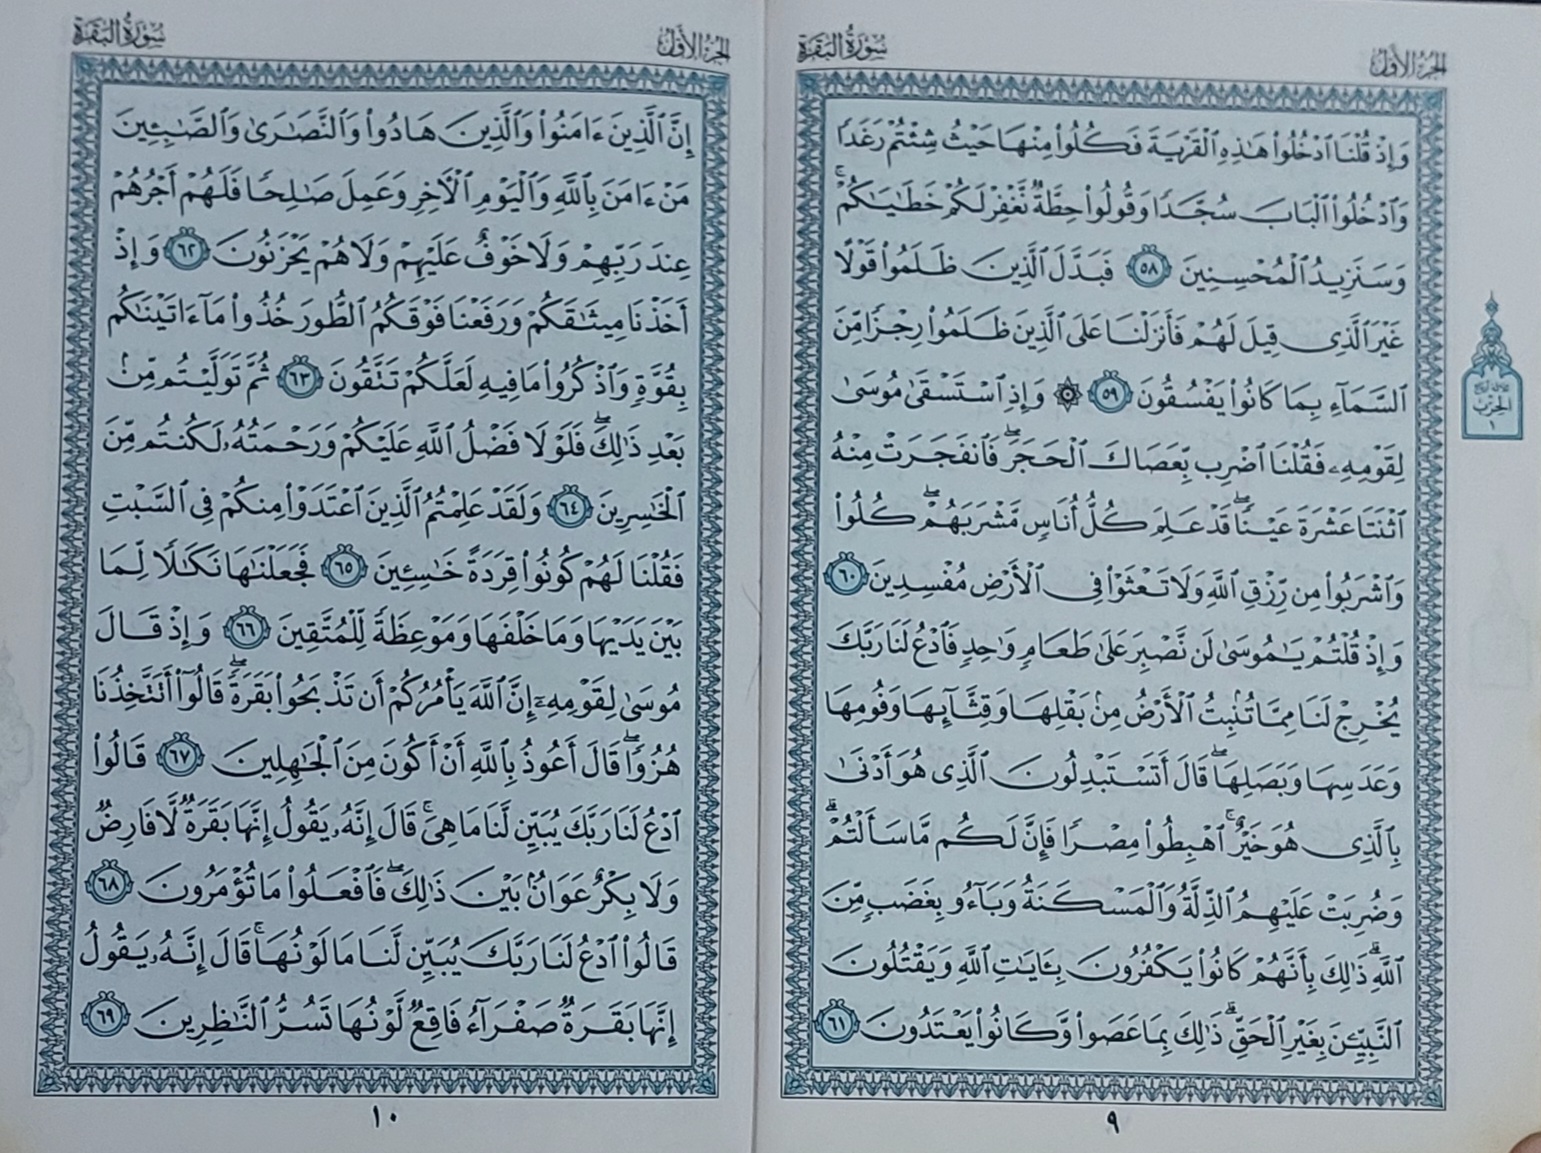 الجزء الأول
سورة البقرة
وَإِذْ قُلْنَا ٱدْخُلُوا۟ هَـٰذِهِ ٱلْقَرْيَةَ فَكُلُوا۟ مِنْهَا حَيْثُ شِئْتُمْ رَغَدًا
وَٱدْخُلُوا۟ ٱلْبَابَ سُجَّدًا وَقُولُوا۟ حِطَّةٌ نَّغْفِرْ لَكُمْ خَطَـٰيَـٰكُمْ ۚ
وَسَنَزِيدُ ٱلْمُحْسِنِينَ ٥٨ فَبَدَّلَ ٱلَّذِينَ ظَلَمُوا۟ قَوْلًا
غَيْرَ ٱلَّذِى قِيلَ لَهُمْ فَأَنزَلْنَا عَلَى ٱلَّذِينَ ظَلَمُوا۟ رِجْزًا مِّنَ
ٱلسَّمَآءِ بِمَا كَانُوا۟ يَفْسُقُونَ ٥٩ ۞ وَإِذِ ٱسْتَسْقَىٰ مُوسَىٰ
لِقَوْمِهِۦ فَقُلْنَا ٱضْرِب بِّعَصَاكَ ٱلْحَجَرَ ۖ فَٱنفَجَرَتْ مِنْهُ
ٱثْنَتَا عَشْرَةَ عَيْنًا ۖ قَدْ عَلِمَ كُلُّ أُنَاسٍ مَّشْرَبَهُمْ ۖ كُلُوا۟
وَٱشْرَبُوا۟ مِن رِّزْقِ ٱللَّهِ وَلَا تَعْثَوْا۟ فِى ٱلْأَرْضِ مُفْسِدِينَ ٦٠
وَإِذْ قُلْتُمْ يَـٰمُوسَىٰ لَن نَّصْبِرَ عَلَىٰ طَعَامٍ وَٰحِدٍ فَٱدْعُ لَنَا رَبَّكَ
يُخْرِجْ لَنَا مِمَّا تُنۢبِتُ ٱلْأَرْضُ مِنۢ بَقْلِهَا وَقِثَّآئِهَا وَفُومِهَا
وَعَدَسِهَا وَبَصَلِهَا ۖ قَالَ أَتَسْتَبْدِلُونَ ٱلَّذِى هُوَ أَدْنَىٰ
بِٱلَّذِى هُوَ خَيْرٌ ۚ ٱهْبِطُوا۟ مِصْرًا فَإِنَّ لَكُم مَّا سَأَلْتُمْ ۗ
وَضُرِبَتْ عَلَيْهِمُ ٱلذِّلَّةُ وَٱلْمَسْكَنَةُ وَبَآءُو بِغَضَبٍ مِّنَ
ٱللَّهِ ۗ ذَٰلِكَ بِأَنَّهُمْ كَانُوا۟ يَكْفُرُونَ بِـَٔايَـٰتِ ٱللَّهِ وَيَقْتُلُونَ
ٱلنَّبِيِّـۧنَ بِغَيْرِ ٱلْحَقِّ ۗ ذَٰلِكَ بِمَا عَصَوا۟ وَّكَانُوا۟ يَعْتَدُونَ ٦١
الحزب
١
٩
الجزء الأول
سورة البقرة
إِنَّ ٱلَّذِينَ ءَامَنُوا۟ وَٱلَّذِينَ هَادُوا۟ وَٱلنَّصَـٰرَىٰ وَٱلصَّـٰبِـِٔينَ
مَنْ ءَامَنَ بِٱللَّهِ وَٱلْيَوْمِ ٱلْـَٔاخِرِ وَعَمِلَ صَـٰلِحًا فَلَهُمْ أَجْرُهُمْ
عِندَ رَبِّهِمْ وَلَا خَوْفٌ عَلَيْهِمْ وَلَا هُمْ يَحْزَنُونَ ٦٢ وَإِذْ
أَخَذْنَا مِيثَـٰقَكُمْ وَرَفَعْنَا فَوْقَكُمُ ٱلطُّورَ خُذُوا۟ مَآ ءَاتَيْنَـٰكُم
بِقُوَّةٍ وَٱذْكُرُوا۟ مَا فِيهِ لَعَلَّكُمْ تَتَّقُونَ ٦٣ ثُمَّ تَوَلَّيْتُم مِّنۢ
بَعْدِ ذَٰلِكَ ۖ فَلَوْلَا فَضْلُ ٱللَّهِ عَلَيْكُمْ وَرَحْمَتُهُۥ لَكُنتُم مِّنَ
ٱلْخَـٰسِرِينَ ٦٤ وَلَقَدْ عَلِمْتُمُ ٱلَّذِينَ ٱعْتَدَوْا۟ مِنكُمْ فِى ٱلسَّبْتِ
فَقُلْنَا لَهُمْ كُونُوا۟ قِرَدَةً خَـٰسِـِٔينَ ٦٥ فَجَعَلْنَـٰهَا نَكَـٰلًا لِّمَا
بَيْنَ يَدَيْهَا وَمَا خَلْفَهَا وَمَوْعِظَةً لِّلْمُتَّقِينَ ٦٦ وَإِذْ قَالَ
مُوسَىٰ لِقَوْمِهِۦٓ إِنَّ ٱللَّهَ يَأْمُرُكُمْ أَن تَذْبَحُوا۟ بَقَرَةً ۖ قَالُوٓا۟ أَتَتَّخِذُنَا
هُزُوًا ۖ قَالَ أَعُوذُ بِٱللَّهِ أَنْ أَكُونَ مِنَ ٱلْجَـٰهِلِينَ ٦٧ قَالُوا۟
ٱدْعُ لَنَا رَبَّكَ يُبَيِّن لَّنَا مَا هِىَ ۚ قَالَ إِنَّهُۥ يَقُولُ إِنَّهَا بَقَرَةٌ لَّا فَارِضٌ
وَلَا بِكْرٌ عَوَانٌۢ بَيْنَ ذَٰلِكَ ۖ فَٱفْعَلُوا۟ مَا تُؤْمَرُونَ ٦٨
قَالُوا۟ ٱدْعُ لَنَا رَبَّكَ يُبَيِّن لَّنَا مَا لَوْنُهَا ۚ قَالَ إِنَّهُۥ يَقُولُ
إِنَّهَا بَقَرَةٌ صَفْرَآءُ فَاقِعٌ لَّوْنُهَا تَسُرُّ ٱلنَّـٰظِرِينَ ٦٩
١٠